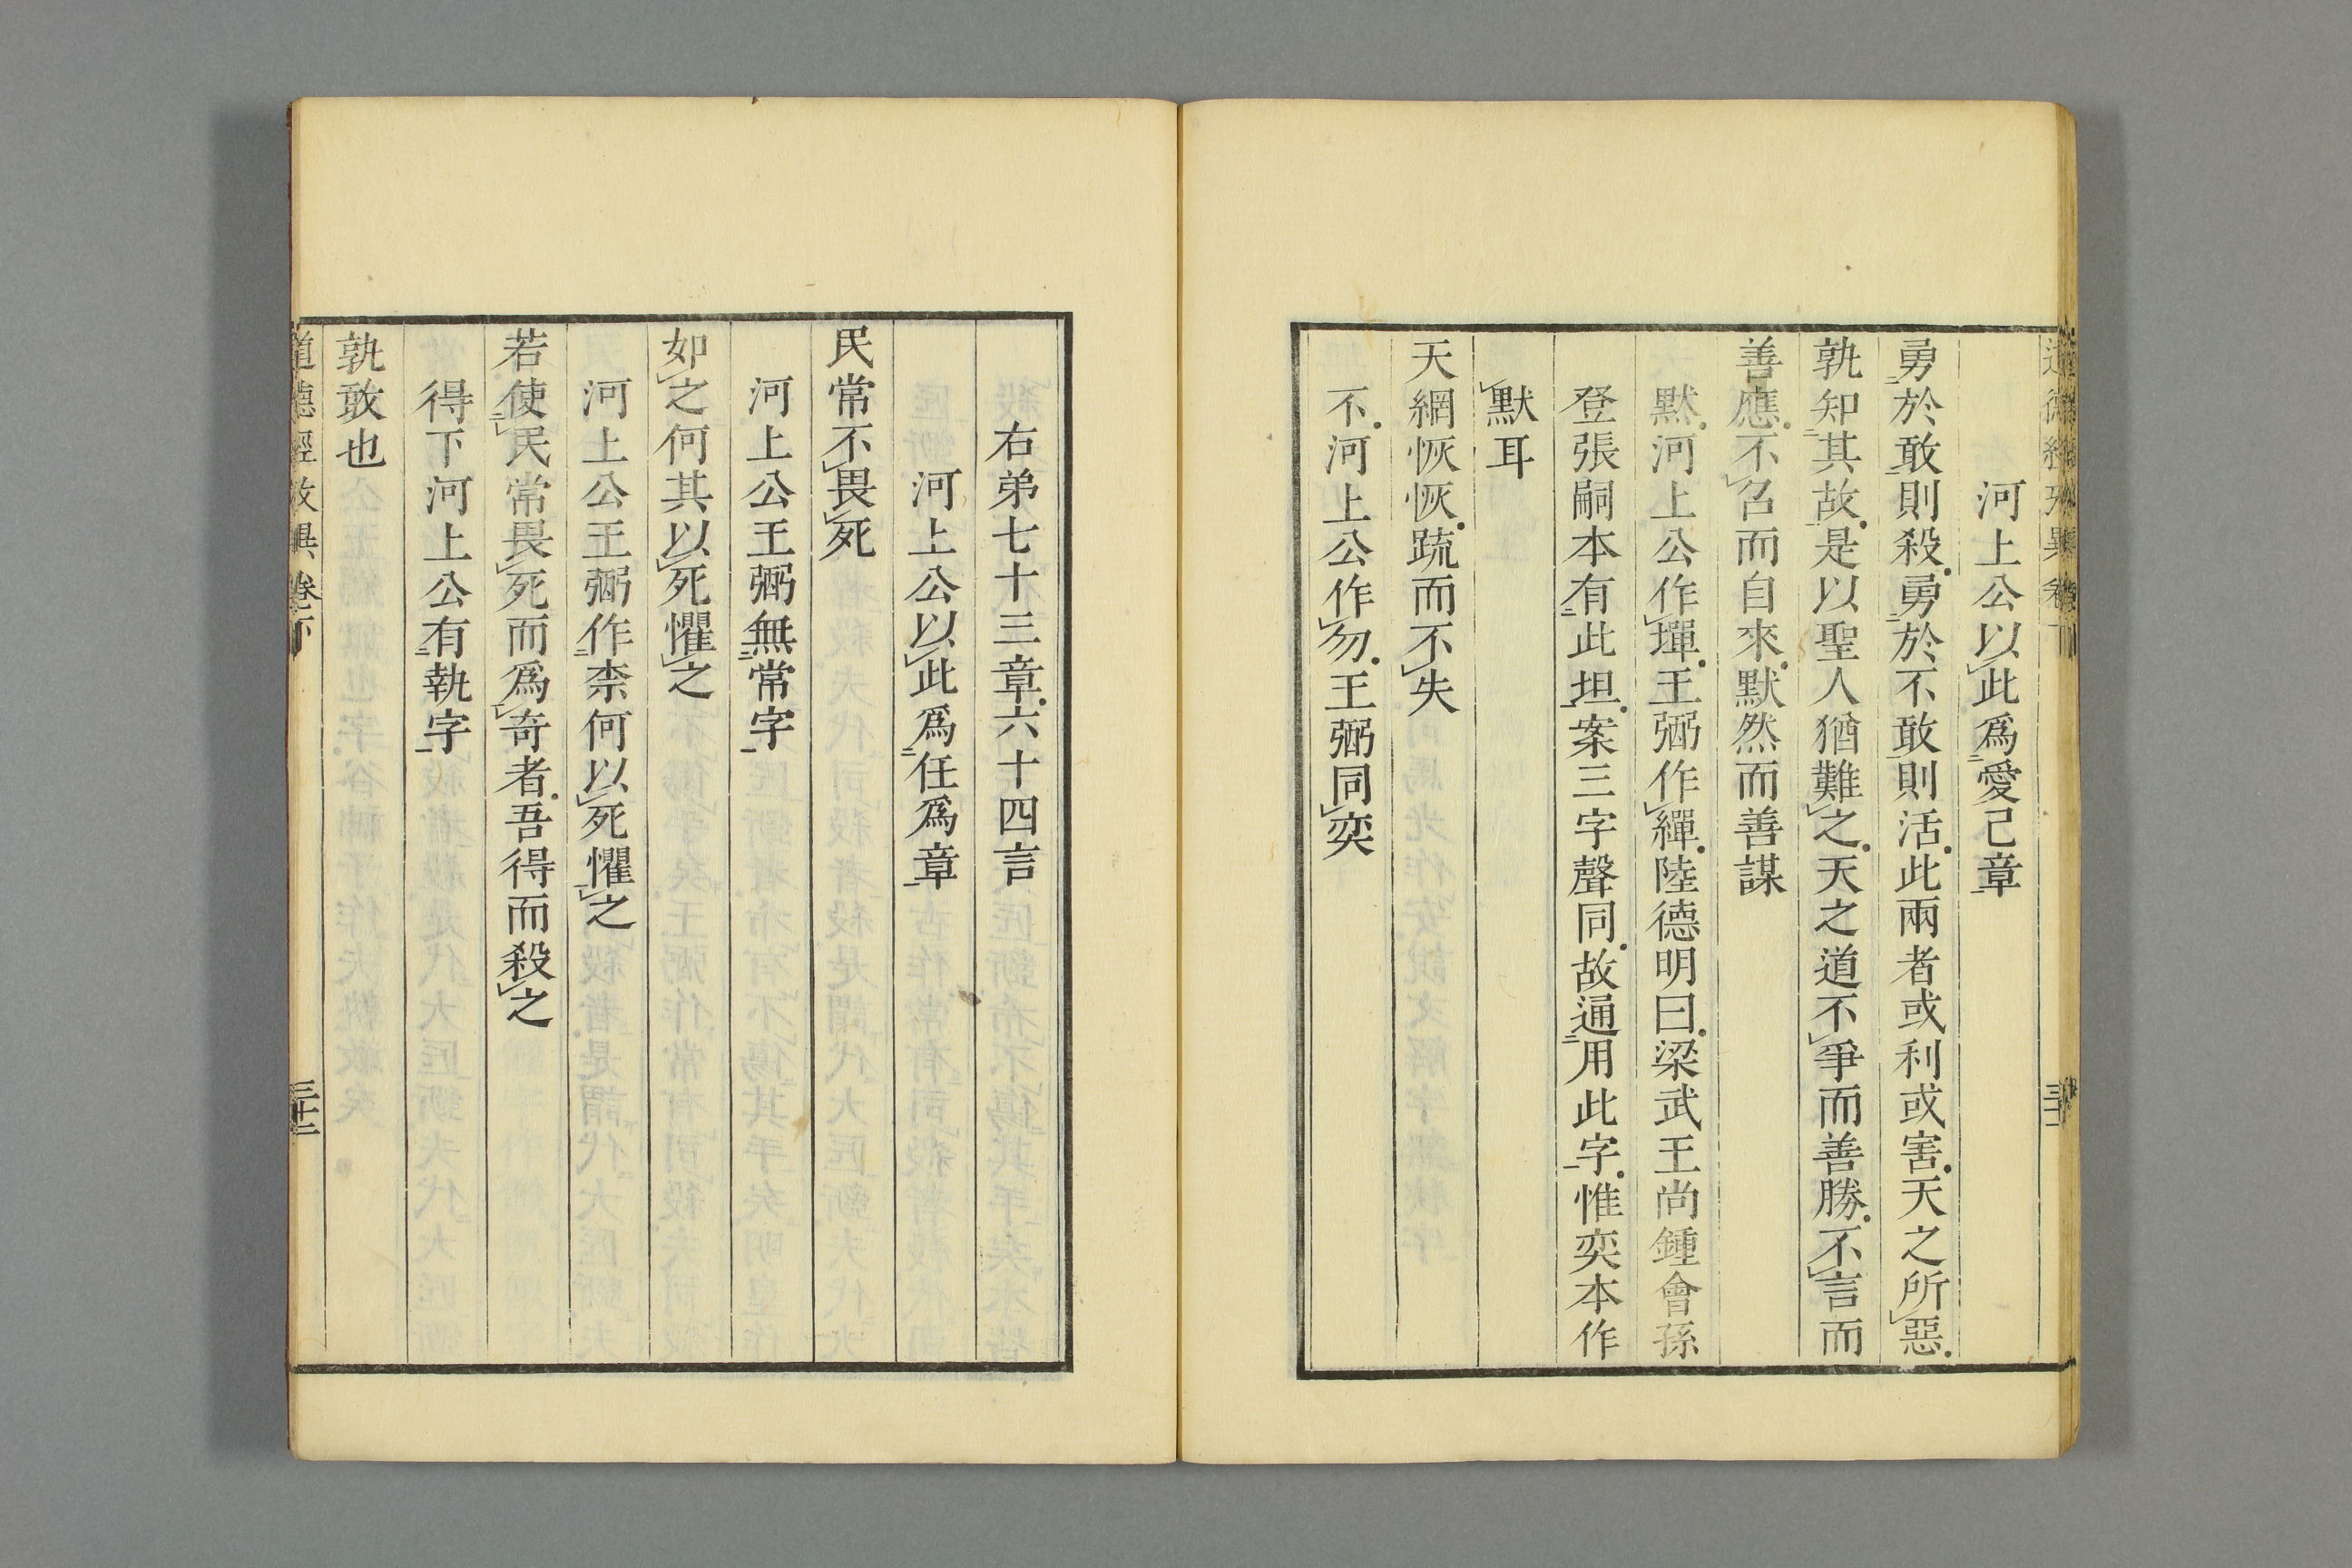 道德經攷異卷下
河上公以此爲愛己章
勇於敢則殺勇於不敢則活此兩者或利或害天之所惡
孰知其故是以聖人猶難之天之道不爭而善勝不言而
善應不召而自來默然而善謀
默河上公作墠王弼作繟陸德明曰梁武王尚鍾會孫
登張嗣本有此坦案三字聲同故通用此字惟奕本作
默耳
天網恢恢疏而不失
不河上公作勿王弼同奕
右弟七十三章六十四言
河上公以此爲任爲章
民常不畏死
河上公王弼無常字
如之何其以死懼之
河上公王弼作柰何以死懼之
若使民常畏死而爲奇者吾得而殺之
得下河上公有執字
孰敢也
道德經攷異卷下